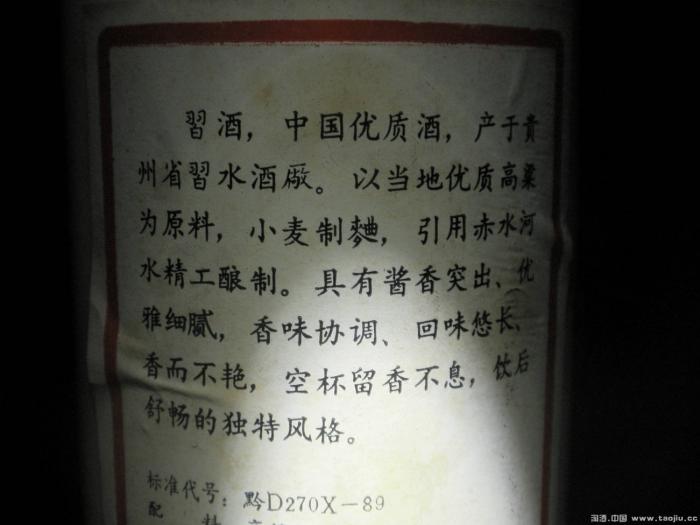 習酒，中国优质酒，产于贵
州省習水酒厰。以当地优质高粱
为原料，小麦制麯，引用赤水河
水精工酿制。具有酱香突出、优
雅细腻，香味协调、回味悠长、
香而不艳，空杯留香不息，饮后
舒畅的独特风格。
标准代号：黔D270X－89
配 料
淘酒.中国 www.taojiu.cc